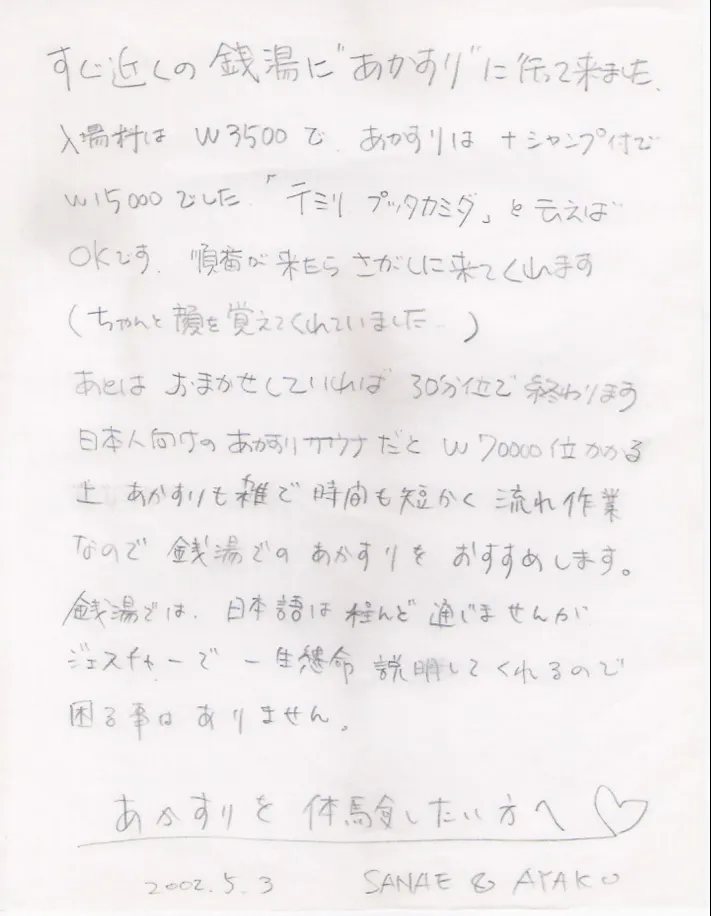 すぐ近くの銭湯に"あかすり"に行って来ました、
入場料は W3500で、あかすりは +シャンプ付で
W15000でした.「テミリ プッタカミダ」と云えば
OKです. 順番が来たら さがしに来てくれます
(ちゃんと顔を覚えてくれていました..)
あとは おまかせしていれば 30分位で 終わります
日本人向けの あかすりサウナだと W70000位かかる
上 あかすりも雑で 時間も短かく 流れ作業
なので 銭湯での あかすりを おすすめします。
銭湯では、日本語は 程んど 通じませんが
ジェスチャーで 一生懸命 説明してくれるので
困る事は ありません。
あかすりを 体験したい方へ ♡
2002.5.3 SANAE & AYAKO